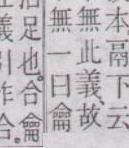 本鬲下云
無此義故
無一曰龠
足也合龠
義引作合龠